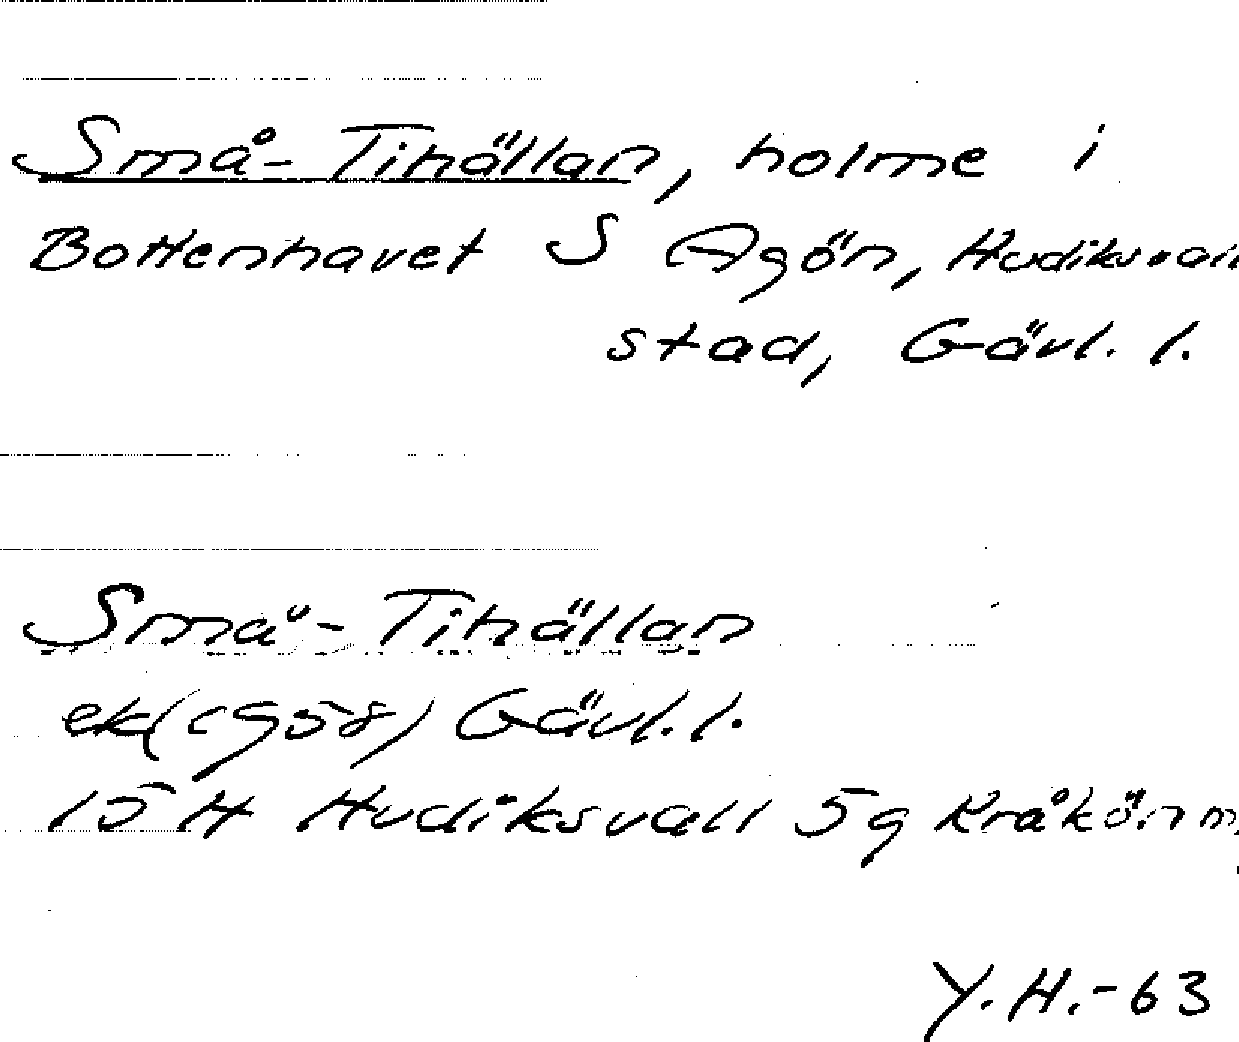 Små-Tihällan, holme i
Bottenhavet S Agön, Hudiksvall
stad, Gävl. l.
Små-Tihällan
ek(1958) Gävl. l.
15 H Hudiksvall 5g Kråkön m,
Y.H.-63